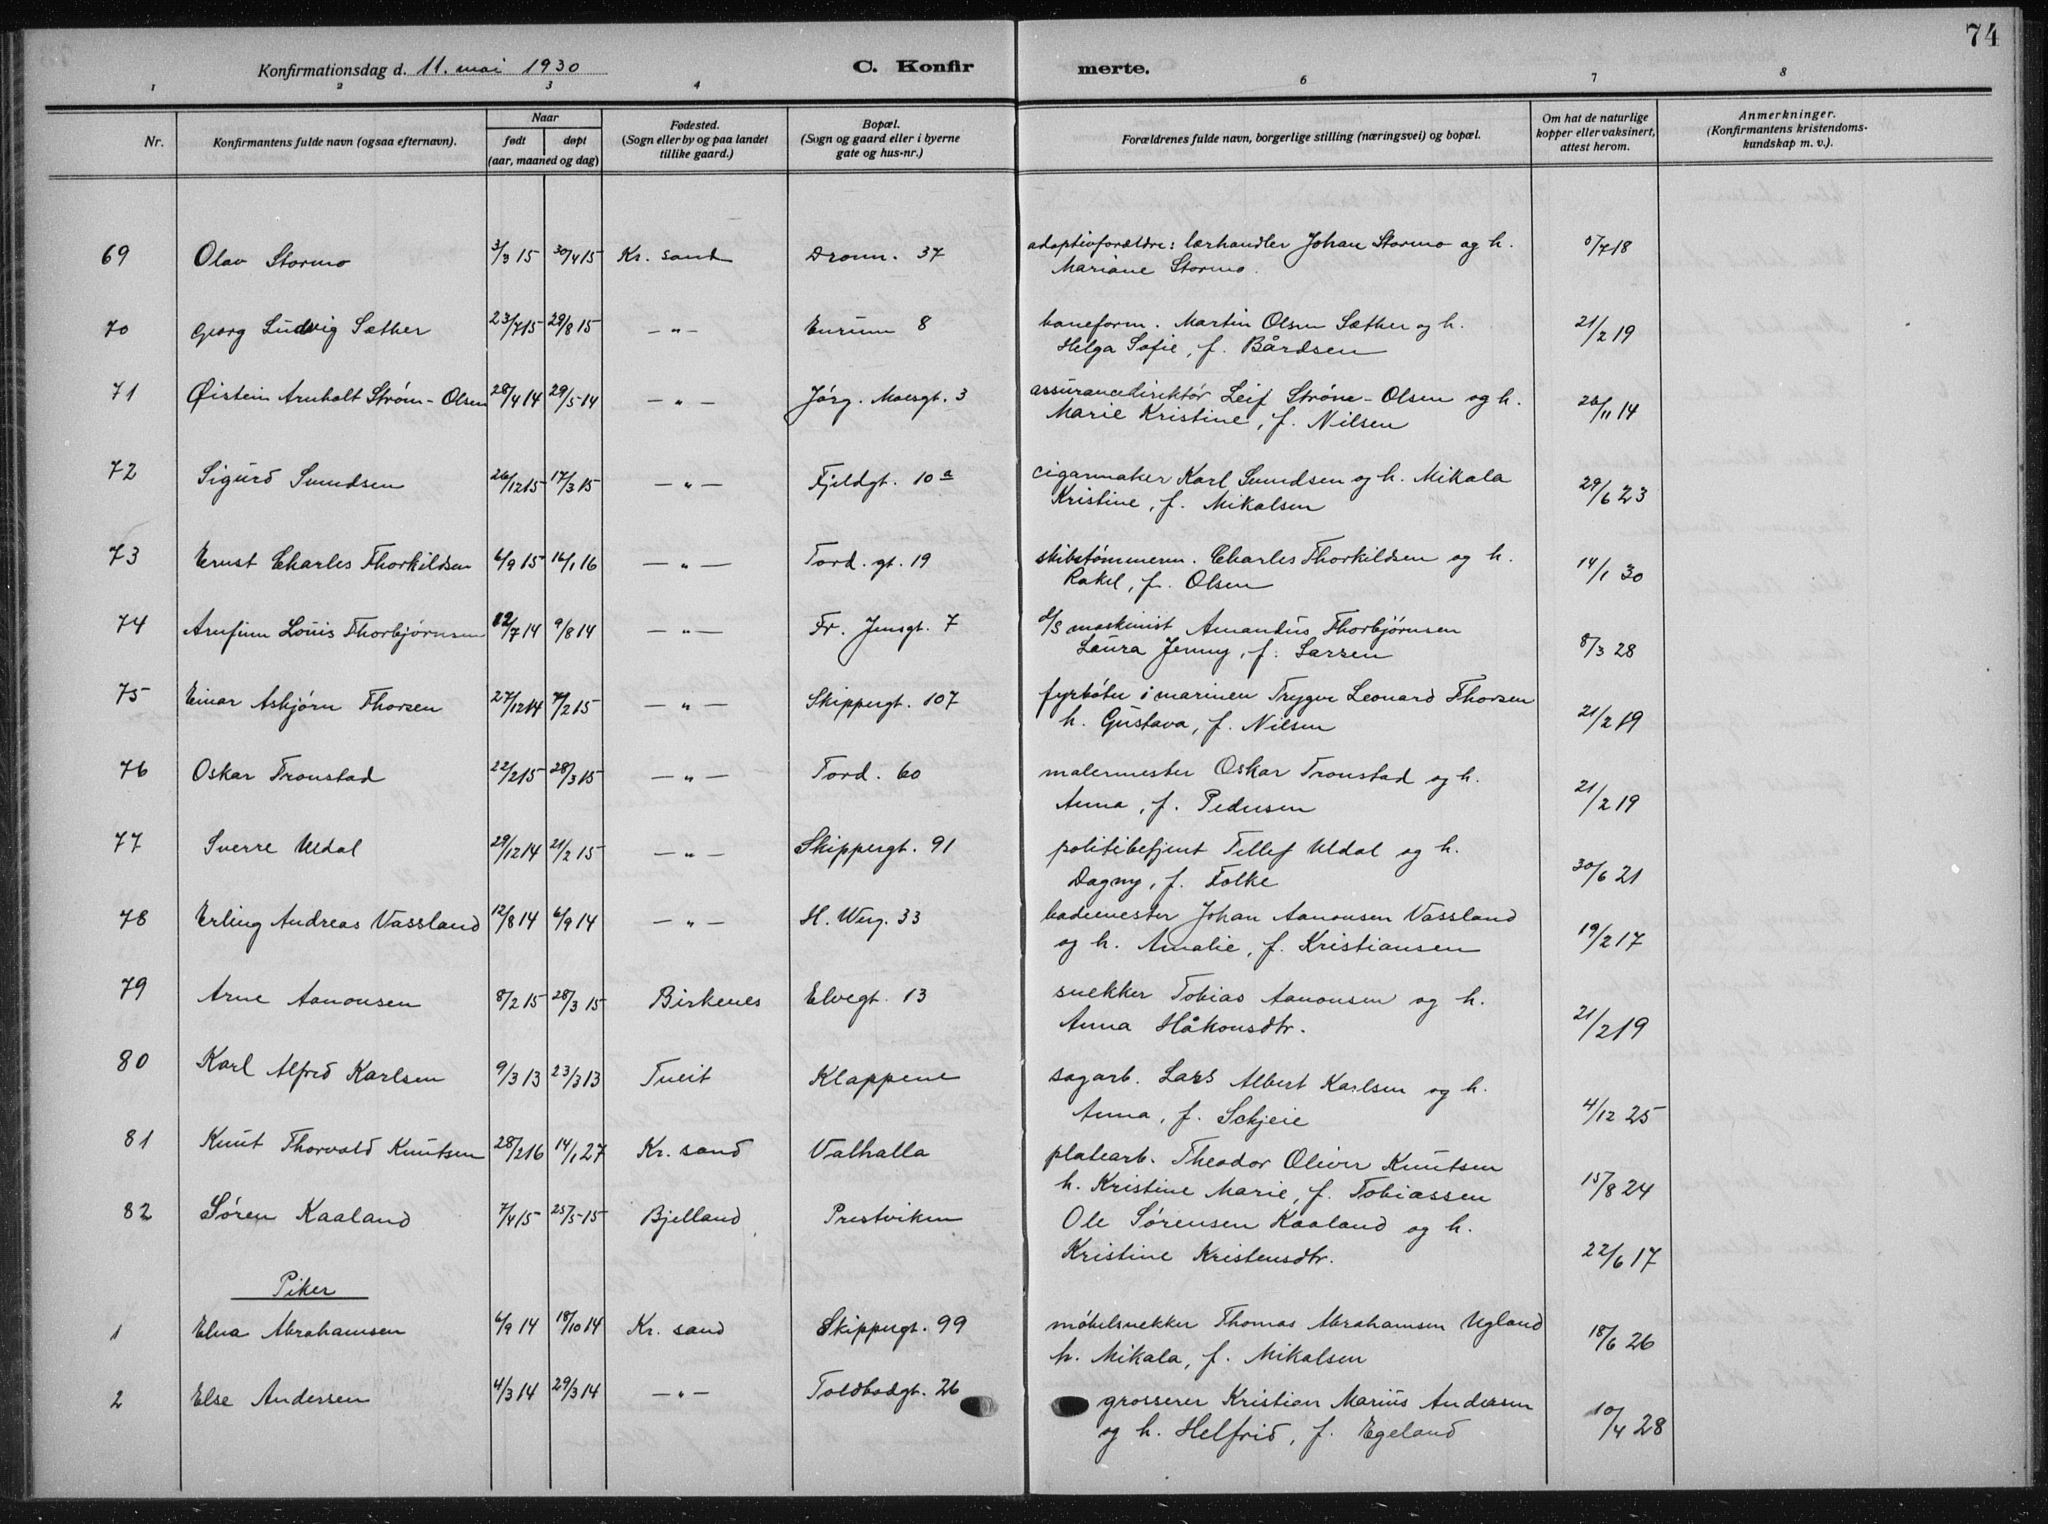 74
Konfirmationsdag d. 11. mai 1930 C. Konfir merte.
1 2 3 4 6 7 8
Nr. Konfirmantens fulde navn (ogsaa efternavn). Naar født døpt (aar, maaned og dag) Fødested. (Sogn eller by og paa landet tillike gaard.) Bopæl. (Sogn og gaard eller i byerne gate og hus-nr.) Forældrenes fulde navn, borgerlige stilling (næringsvei) og bopæl. Om hat de naturlige kopper eller vaksinert, attest herom. Anmerkninger. (Konfirmantens kristendoms-kundskap m. v.).
69 Olav Stormo 3/3 15 30/4 15 Kr. sand Dronn. 37 adoptivforældre: lærhandler Johan Stormo og h. 5/7 18
Mariane Stormo.
70 Georg Ludvig Sæther 23/7 15 29/8 15 —"— Enrum 8 baneform. Martin Olsen Sæther og h. 21/2 19
Helga Sofie, f. Bårdsen
71 Øistein Arnholt Strøm-Olsen 28/4 14 29/5 14 —"— Jørg. Moesgt. 3 assurancedirektør Leif Strøm-Olsen og h. 26/11 14
Marie Kristine, f. Nilsen
72 Sigurd Sundsen 26/12 15 17/3 15 —"— Fjeldgt. 10 a cigarmaker Karl Sundsen og h. Mikala 29/6 23
Kristine, f. Mikalsen
73 Ernst Charles Thorkildsen 6/9 15 16/1 16 —"— Tord. gt. 19 skibstømmerm. Charles Thorkildsen og h. 14/1 30
Rakel, f. Olsen
74 Arnfinn Louis Thorbjørnsen 12/7 14 9/8 14 —"— Fr. Jensgt. 7 d/s maskinist Amandus Thorbjørnsen 8/3 28
Laura Jenny, f. Larsen
75 Einar Asbjørn Thorsen 27/12 14 7/2 15 —"— Skippergt. 107 fyrbøter i marinen Trygve Leonard Thorsen 21/2 19
h. Gustava, f. Nilsen
76 Oskar Tronstad 22/2 15 28/3 15 —"— Tord. 60 malermester Oskar Tronstad og h. 21/2 19
Anna, f. Pedersen
77 Sverre Uldal 29/12 14 21/2 15 —"— Skippergt. 91 politibetjent Tellef Uldal og h. 30/6 21
Dagny, f. Folke
78 Erling Andreas Vassland 12/8 14 6/9 14 —"— H. Werg. 33 bademester Johan Aanonsen Vassland 19/2 17
og h. Amalie, f. Kristiansen
79 Arne Aanonsen 8/2 15 28/3 15 Birkenes Elvegt. 13 snekker Tobias Aanonsen og h. 21/2 19
Anna Håkonsdtr.
80 Karl Alfred Karlsen 9/3 13 23/3 13 Tveit Klappene sagarb. Lars Albert Karlsen og h. 4/12 25
Anna, f. Schjeie
81 Knut Thorvald Knutsen 28/2 16 14/1 27 Kr. sand Valhalla platearb. Theodor Oliver Knutsen 15/8 24
h. Kristine Marie, f. Tobiassen
82 Søren Kaaland 7/4 15 25/5 15 Bjelland Prestviken Ole Sørensen Kaaland og h. 22/6 17
Kristine Kristensdtr.
Piker
1 Elna Abrahamsen 6/9 14 18/10 14 Kr. sand Skippergt. 99 møbelsnekker Thomas Abrahamsen Ugland 18/6 26
h. Mikala, f. Mikalsen
2 Else Andersen 4/3 14 29/3 14 —"— Toldbodgt. 26 grosserer Kristian Marius Andersen 10/4 28
og h. Helfrid, f. Egeland